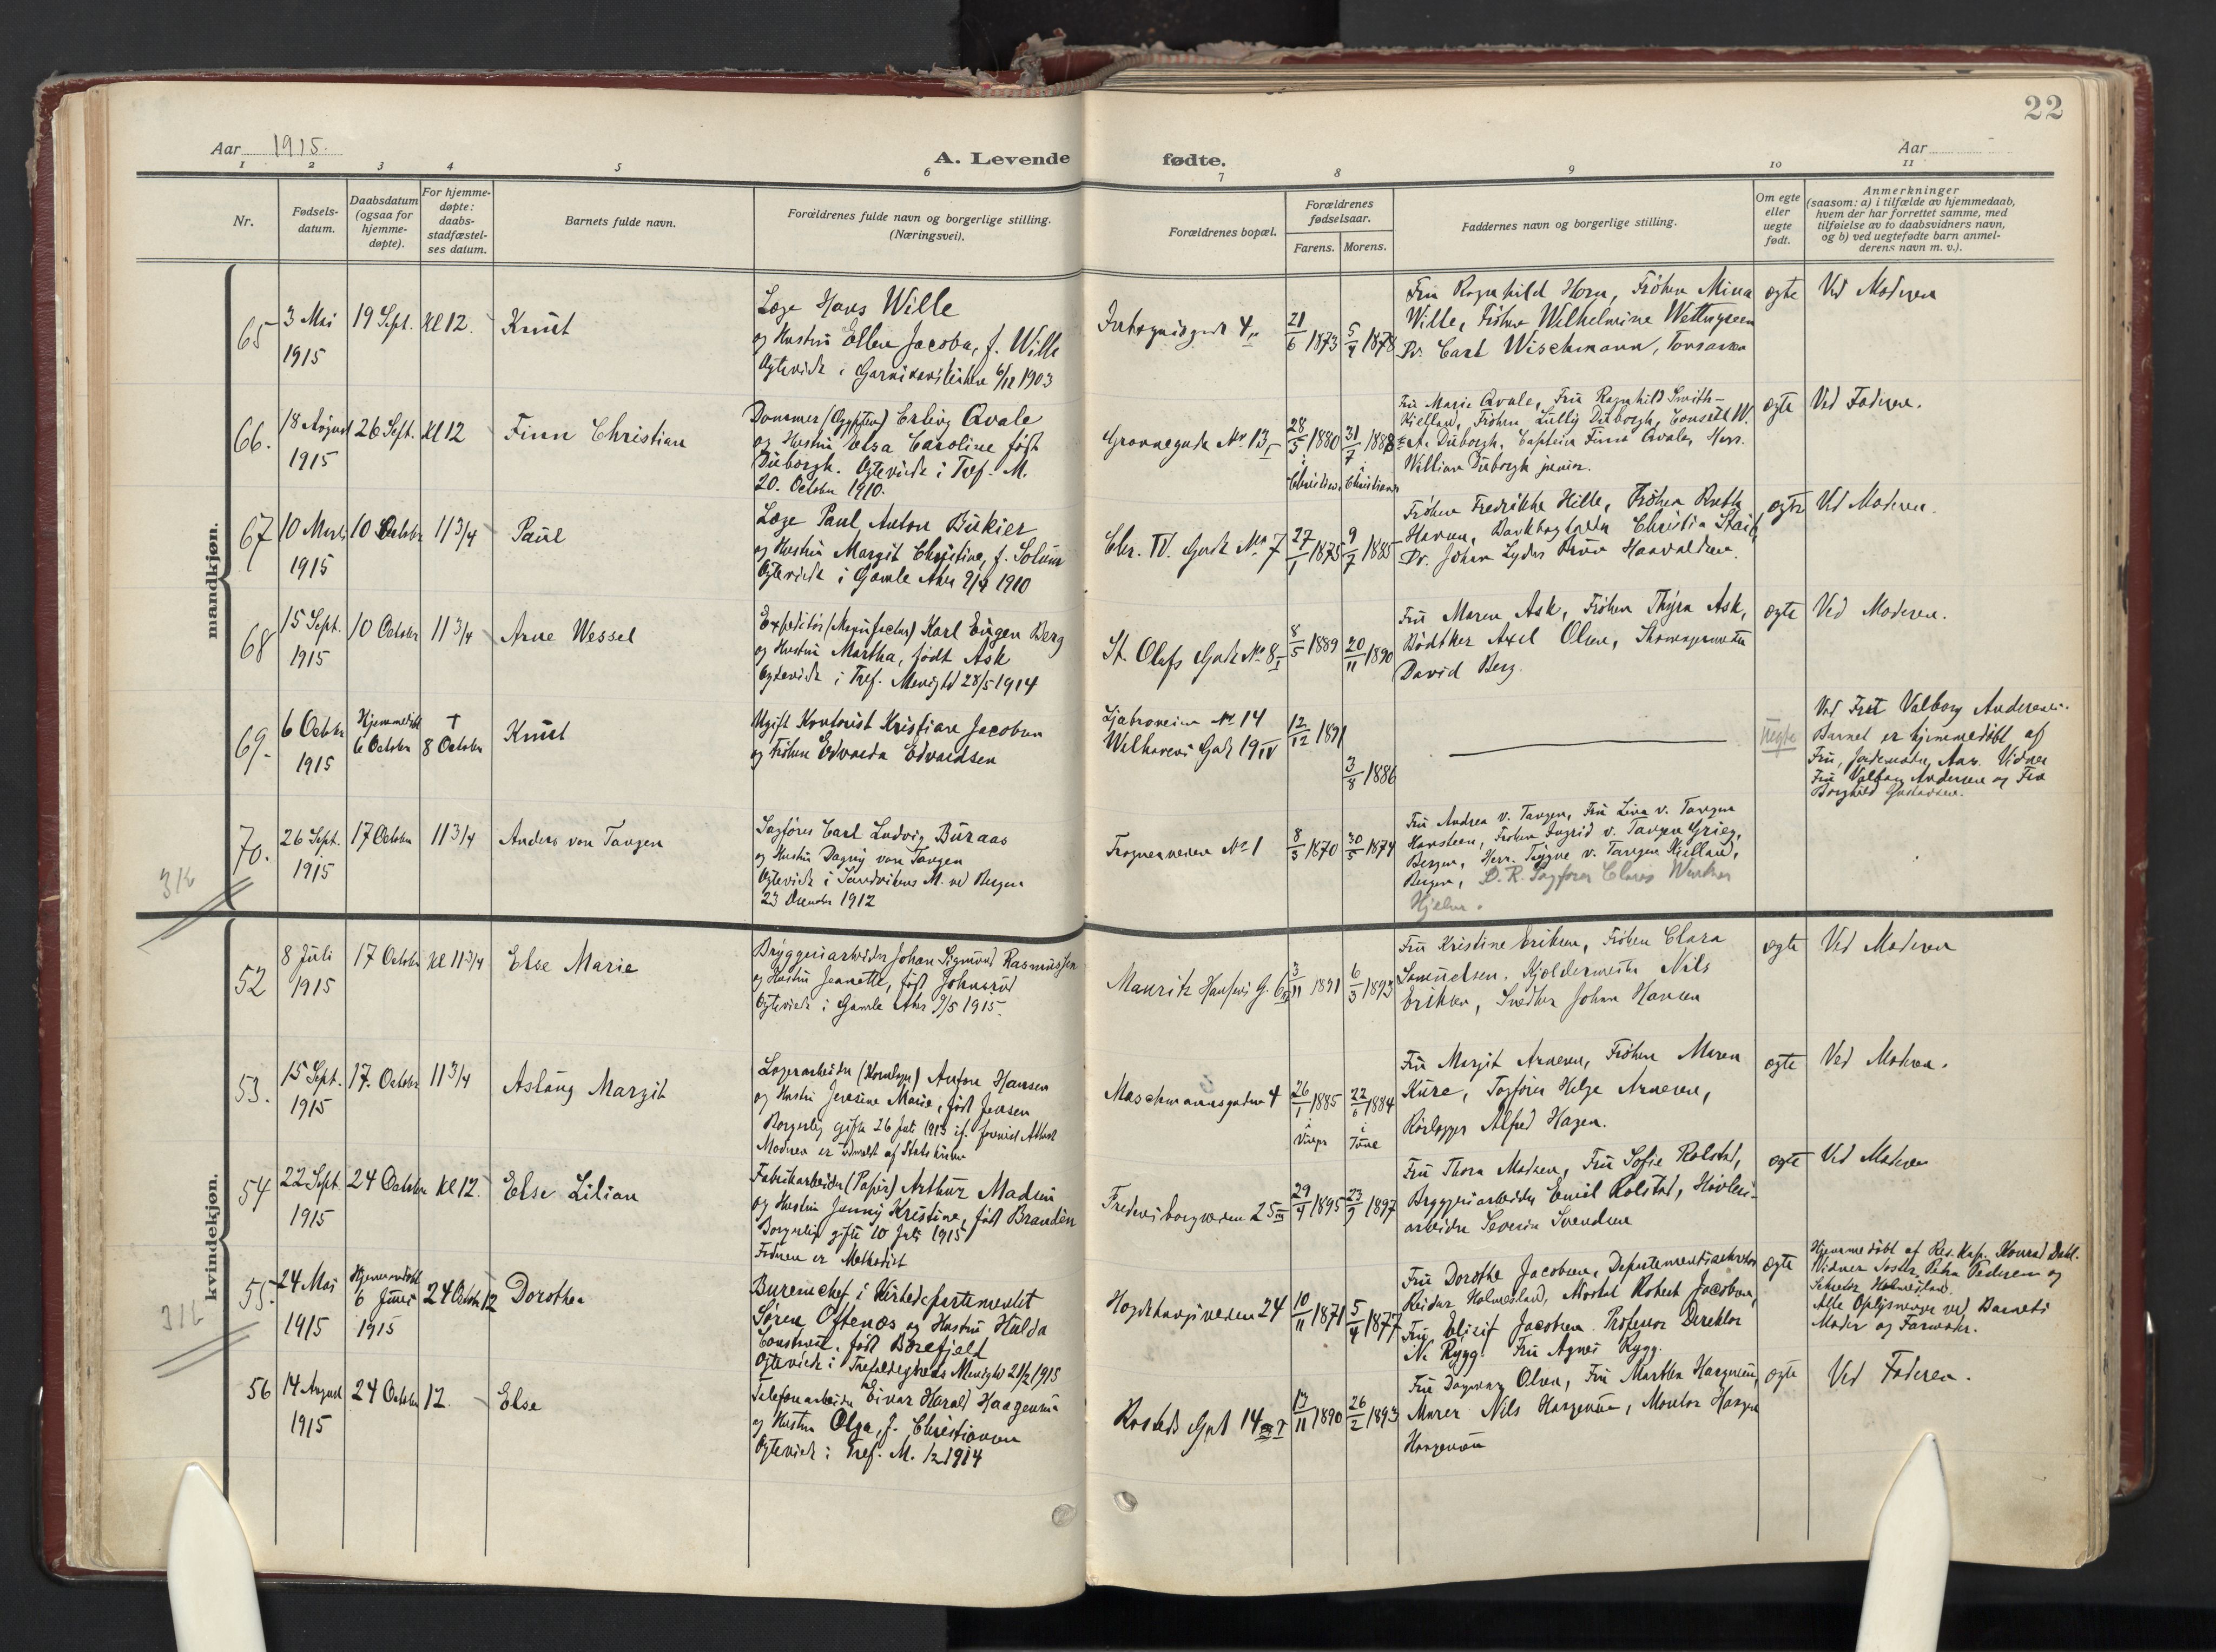 22
Aar 1915.
A. Levende fødte.
Aar
1 2 3 4 5 6 7 8 9 10 11
Nr.
Fødsels-
datum.
Daabsdatum
(ogsaa for
hjemme-
døpte).
For hjemme-
døpte:
daabs-
stadfæstel-
ses datum.
Barnets fulde navn.
Forældrenes fulde navn og borgerlige stilling.
(Næringsvei).
Forældrenes bopæl.
Forældrenes
fødselsaar.
Farens. Morens.
Faddernes navn og borgerlige stilling.
Om egte
eller
uegte
født.
Anmerkninger
(saasom: a) i tilfælde av hjemmedaab,
hvem der har forrettet samme, med
tilføielse av to daabsvidners navn,
og b) ved uegtefødte barn anmel-
derens navn m. v.).
mandkjøn.
65
3 Mai
1915
19 Sept.
Kl 12.
Knut
Læge Hans Wille
og Hustru Ellen Jacoba, f. Wille
Ægteviede i Garnisonskirken 1903
4
21/6 1873
5/4 1878
Fru Ragnhild Horn, Frøken Mina
Wille, Frøken Wilhelmine
Dr. Carl Wischmann,
egte
Ved Moderen
66.
18 August
1915
26 Sept.
Kl 12
Finn Christian
Dommer (Ægypten) Erling Qvale
og Hustru Elsa Caroline født
Düborgh. Ægteviede i Tref. M.
20. October 1910.
No 13
28/5 1880
31/7 1888
Fru Marie Qvale, Fru Ragnhild Smith-
Kielland, Frøken Lully Düborgh, Consul W.
Düborgh, Captein Finn Qvale, Herr.
William Düborgh junior.
egte
Ved Faderen.
67
10 Marts
1915
10 October
11 3/4
Paul
Læge Paul Anton Bükier
og Hustru Margit Christine, f. Solum
Ægteviede i Gamle Aker 9/4 1910
Chr. IV. Gade No 7
27/1 1875
9/7 1885
Frøken Fredrikke Hille, Frøken
Dr. Johan Lyder Brün Haavaldsen.
egte
Ved Moderen.
68
15 Sept.
1915
10 October
11 3/4
Arne Wessel
Expeditør (Manufactur) Karl Eugen Berg
og Hustru Martha, født Ask
Ægteviede i Tref. Menighd 28/5 1914
St. Olafs Gade No 8 I
8/5 1889
20/11 1890
Fru Maren Ask, Frøken Thyra Ask,
Bødtker Axel Olsen,
David Berg.
egte
Ved Moderen.
69.
6 Octbr
1915
Hjemmedøbt
6 October
†
8 October
Knut
Ugift Kontorist Kristian Jacobsen
og Frøken Edvarda Edvardsen
Ljabroveien No 14
Welhavens Gade 19 IV
12/12 1891
3/8 1886
uegte
Ved Valborg Andersen.
Barnet er hjemmedøbt af
Vidner
Fru Valborg Andersen og Fru
Borghild Gustavsen.
70.
26 Sept.
1915
17 October
11 3/4
Anders von Tangen
Sagfører Carl Ludvig Buraas
og Hustru Dagny von Tangen
Ægteviede i Sandvikens M. ved Bergen
23 December 1912
Frognerveien No 1
8/3 1870
30/5 1874
Fru Andrea v. Tangen, Fru Lina v. Tangen
Hansteen, Frøken Ingrid v. Tangen Grieg,
Bergen, Herr. Trygve v. Tangen Kielland,
Bergen, O. R. Sagfører
Hjelm.
kvindekjøn.
52
8 Juli
1915
17 October
Kl 11 3/4
Else Marie
Bryggeriarbeider Johan Sigmund Rasmussen
og Hustru Jeanette, født Johnsrud
Ægteviede i Gamle Aker 9/5 1915.
Mauritz Hansens G. 6
3/11 1891
6/3 1893
Fru Kristine Eriksen, Frøken Clara
Samuelsen. Kjeldermester Nils
Eriksen, Snedker Johan Hansen
egte
Ved Moderen
53.
15 Sept.
1915
17. October
11 3/4
Aslaug Margit
Lagerarbeider (Kornlager) Anton Hansen
og Hustru Jensine Marie, født Jensen
Borgerlig gifte 26 Juli 1913 if. forevist Attest
Moderen er udmeldt af Statskirken
Maschmannsgaden 4
26/1 1885
22/6 1884
i Tune
Fru Margit Arnesen, Frøken Maren
Kure, Togfører Helge Arnesen,
Rørlægger Alfred Hagen.
egte
Ved Moderen.
54
22 Sept.
1915
24 October
Kl 12.
Else Lilian
Fabrikarbeider (Papir) Arthur Madsen
og Hustru Jenny Kristine, født Brandén
Borgerlig gifte 10 Juli 1915
Faderen er Methodist
Fredensborgveien 25 III
29/4 1895
23/9 1897
Fru Thora Madsen, Fru Sofie Rolstad,
Bryggeriarbeider Emil Rolstad, Høvleri-
arbeider Severin Svendsen
egte
Ved Moderen
55.
24 Mai
1915
Hjemmedøbt
6 Juni
1915
24 October 12
Dorothea
Bureauchef i Kirkedepartementet
Søren Oftenæs og Hustru Hulda
Constance, født Borefjeld
Ægteviede i Trefoldigheds Menighd 21/2 1915
24
10/11 1871
5/4 1877
Fru Dorothe Jacobsen, Departementssekretær
Reidar Holmesland, Robert Jacobsen,
Fru Elisif Jacobsen. Professor Direktør
N. Rygg. Fru Agnes Rygg.
egte
Hjemmedøbt af Res. Kap. Konrad Dahl.
Vidner Søster Petra Pedersen og
Sekretær Holmesland.
Alle Oplysninger ved Barnets
Moder og Farmoder.
56
14 August
1915
24 October
12.
Else
Telefonarbeider Einar Harald Haagensen
og Hustru Olga, f. Christiansen
Ægteviede i Tref. M. 1914
Rosteds Gad 14
13/11 1890
26/2 1893
Fru Dagmar Olsen, Fru Martha Haagensen,
Murer Nils Haagensen, Montør
Haagensen
egte
Ved Faderen.